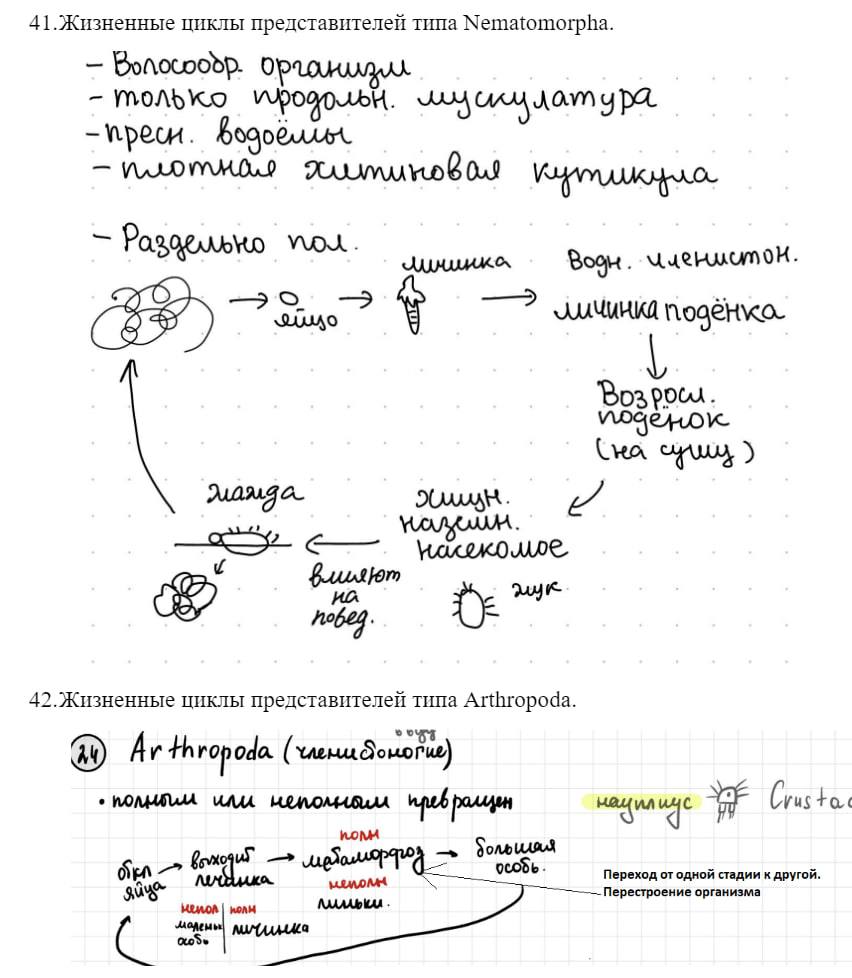 41.Жизненные циклы представителей типа Nematomorpha.
- Волосообр. организм
- только продольн. мускулатура
- пресн. водоёмы
- плотная хитиновая кутикула
- Раздельно пол.
яйцо
личинка
Водн. членистон.
личинка подёнка
Возросл.
подёнок
(на сушу)
хищн.
наземн.
насекомое
жук
влияют
на
повед.
жажда
42.Жизненные циклы представителей типа Arthropoda.
24 Arthropoda (членистоногие)
• полным или неполным превращен
науплиус Crustac
откл
яйца
выходит
личинка
полн
метаморфоз
неполн
линьки.
большая
особь.
Переход от одной стадии к другой.
Перестроение организма
непол | полн
маленьк
особь
личинка